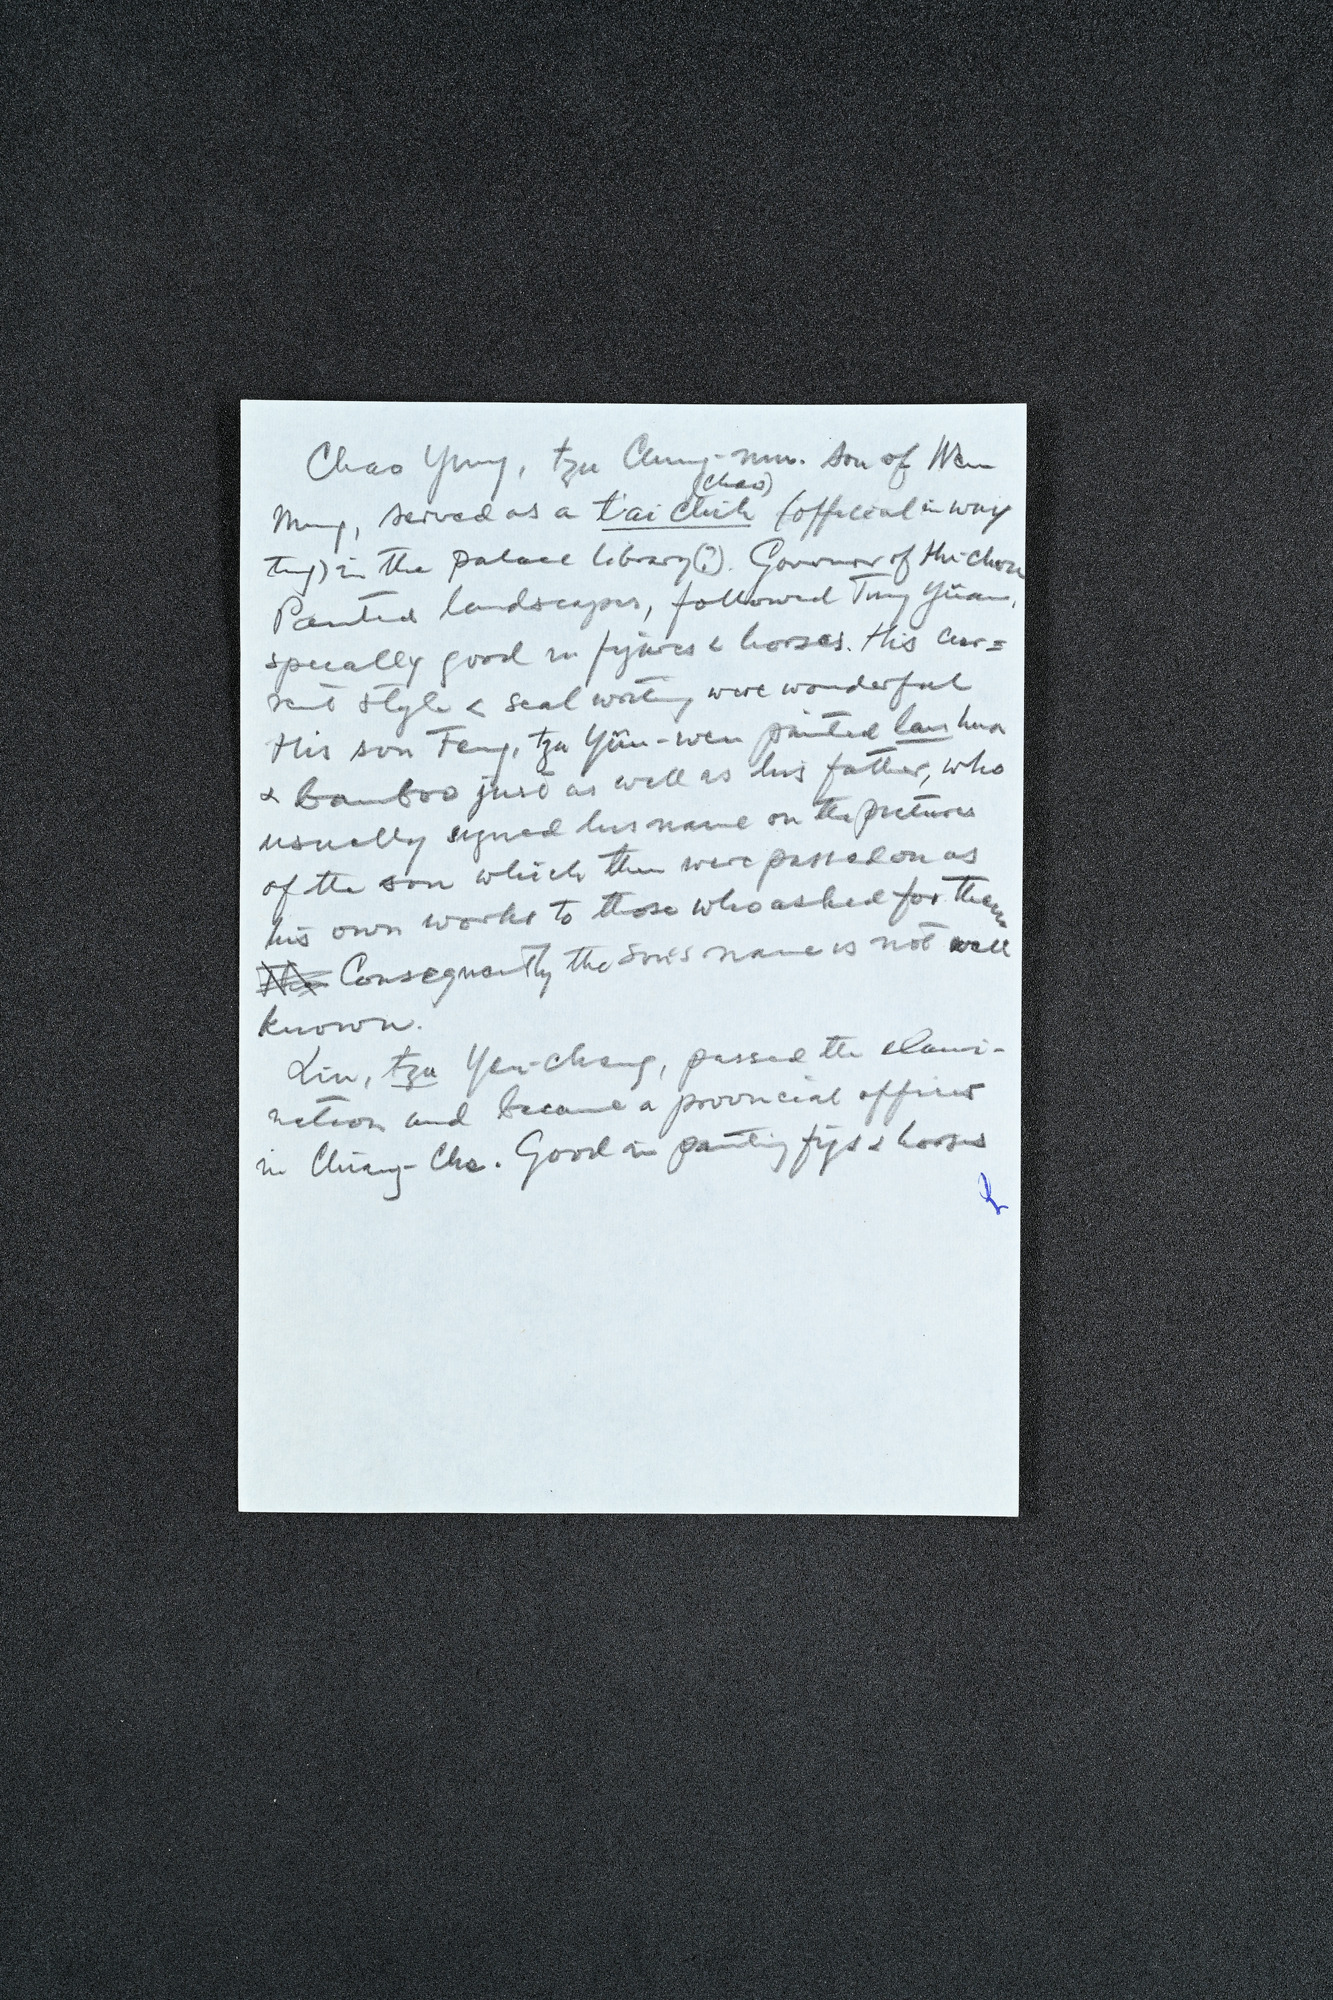 Chao Yung, tzu Chung-mu. Son of Wen
Ming, served as a t'ai chih (official in wai
(chao)
ting) in the palace library(?). Governor of Hu-chou
Painted landscapes, followed Tung Yüan,
specially good in figures & horses. His cur=
sent style & seal writing were wonderful
His son Feng, tzu Yün-wen painted lan hua
& bamboo just as well as his father, who
usually signed his name on the pictures
of the son which then were passed on as
his own works to those who asked for them
Consequently the son's name is not well
known.
Lin, tzu Yen-cheng, passed the exami-
nation and became a provincial officer
in Chiang-Che. Good in painting figs & horses